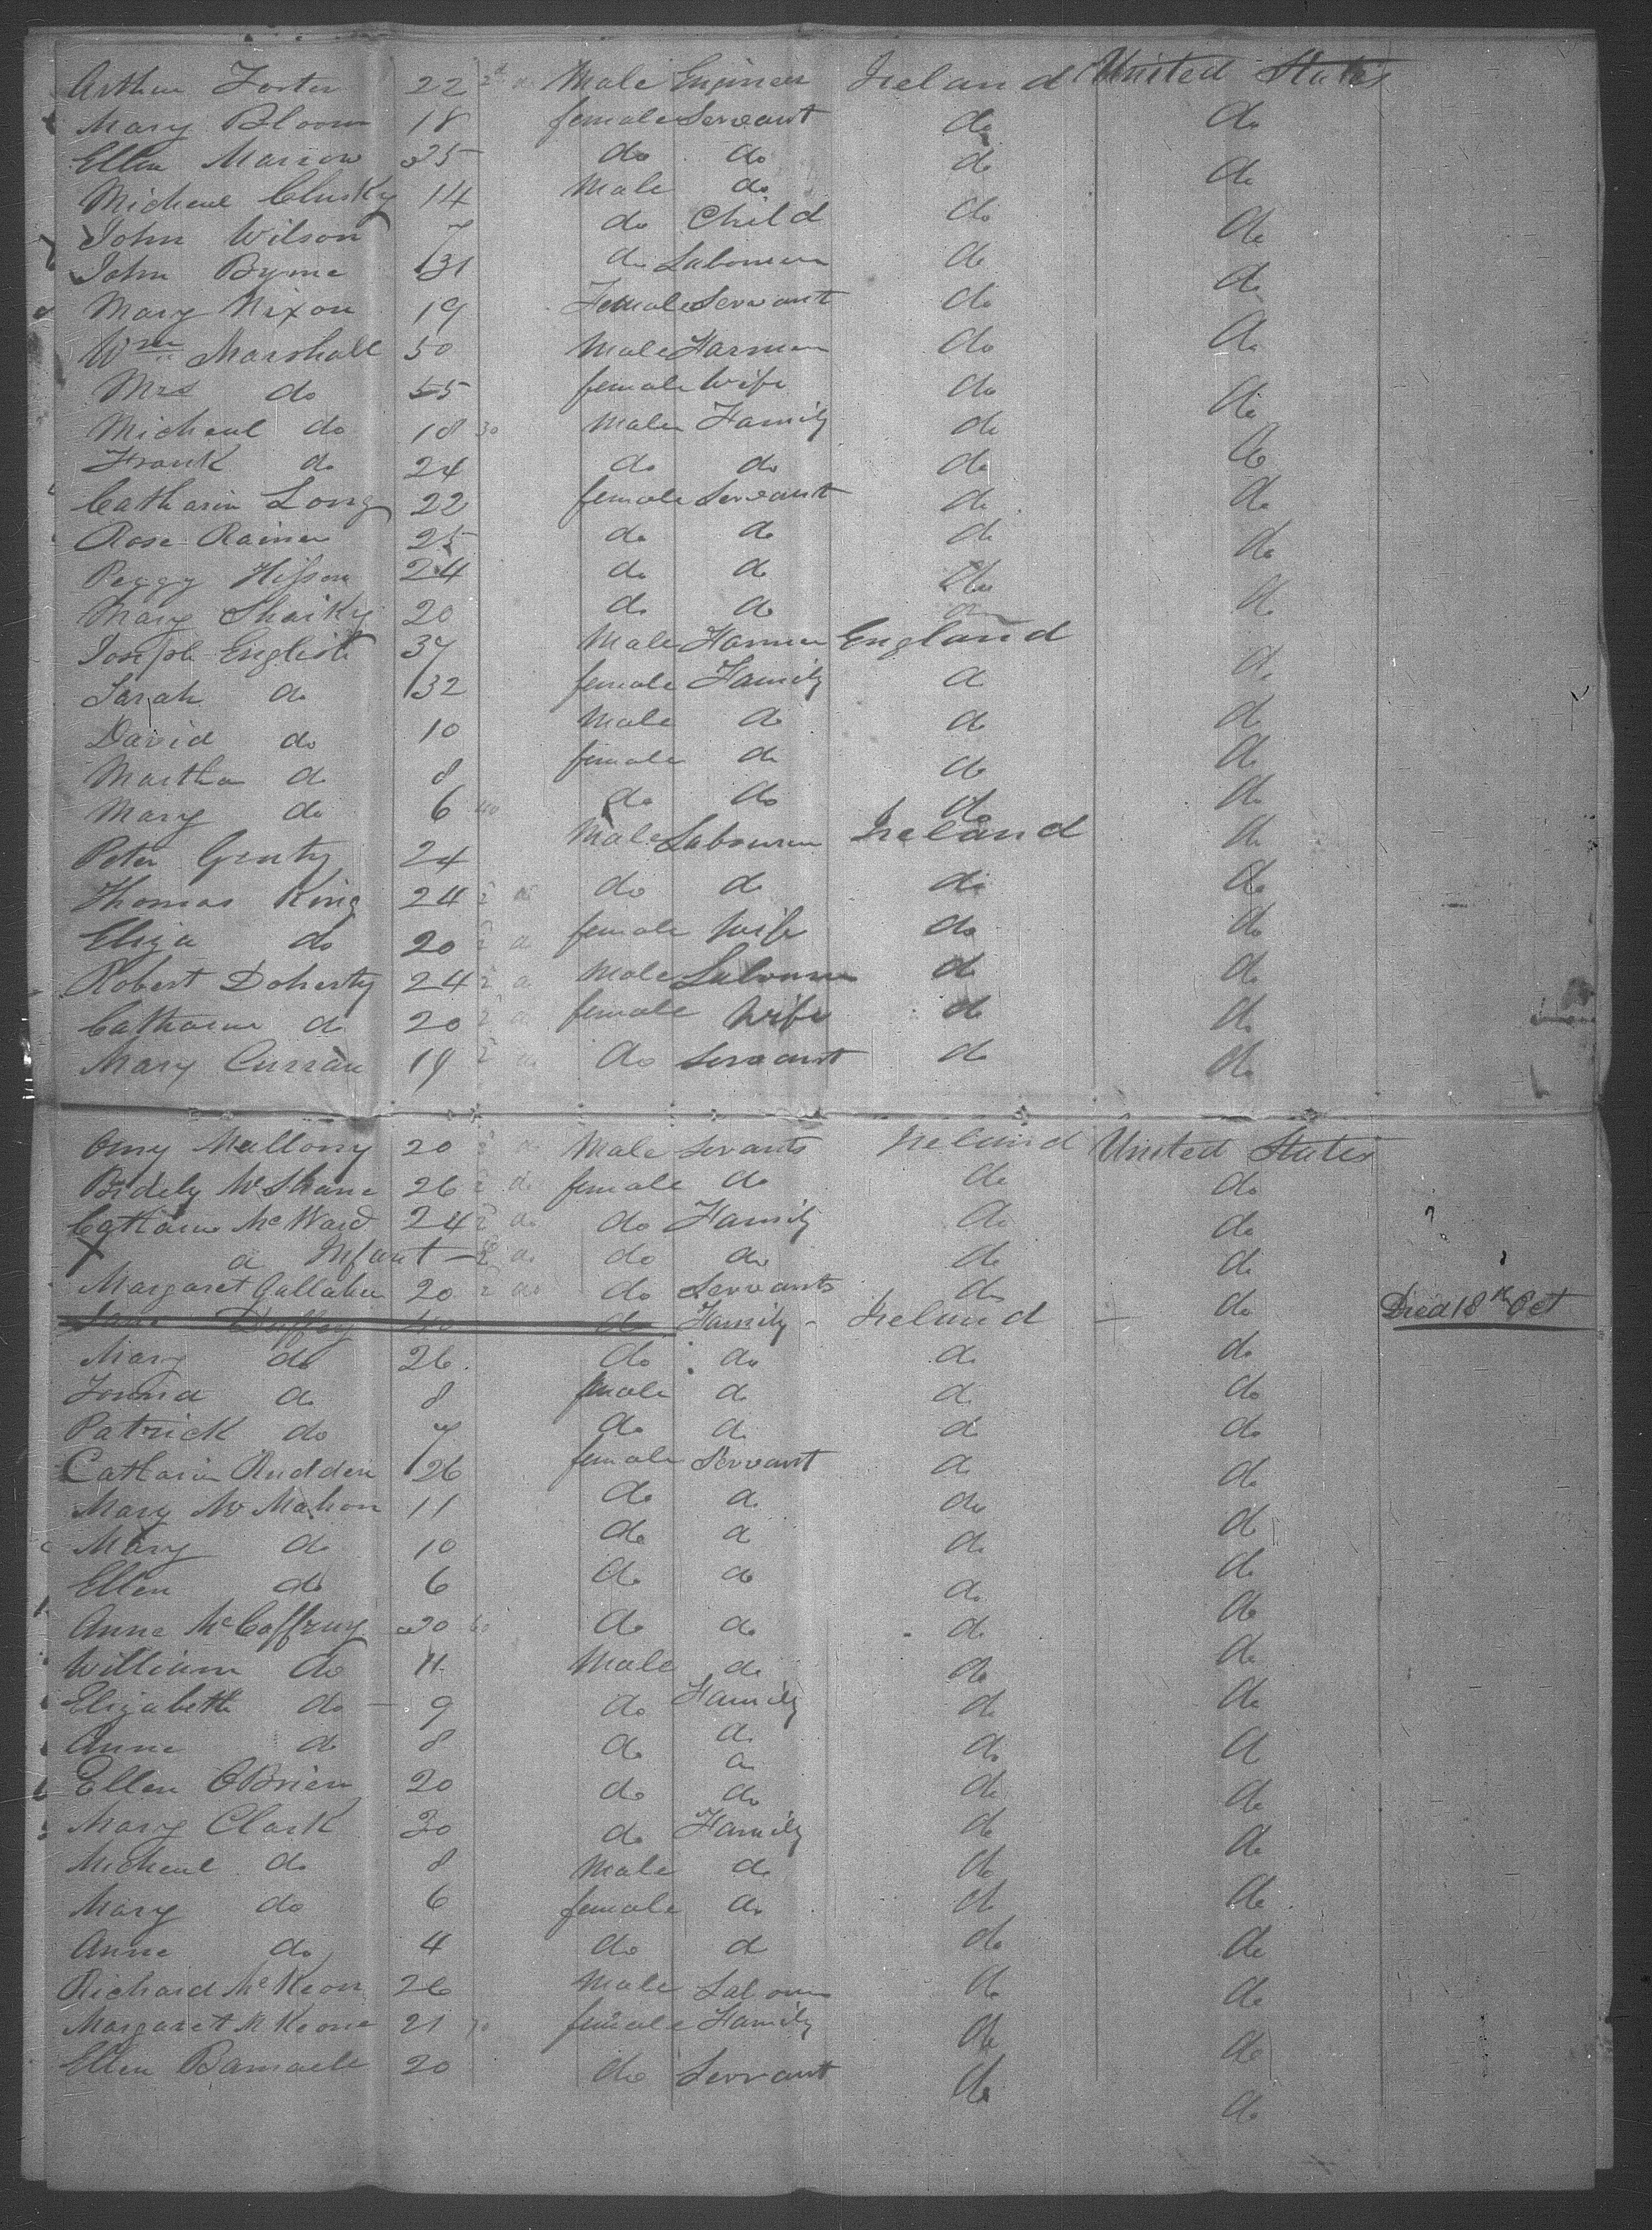 Arthur Foster 22 2d do Male Engineer Ireland United States
Mary Bloom 18 female Servant do do
Ellen Marrow 25 do do do do
Micheal Clusky 14 Male do do do
John Wilson 7 do Child do do
John Byrne 31 do Labourer do do
Mary Nixon 19 Female Servant do do
Wm Marshall 50 Male Farmer do do
Mrs do 55 female Wife do do
Micheal do 18 30 Male Family do do
Frank do 24 do do do do
Catharin Long 22 female Servant do do
Rose 25 do do do do
Peggy 24 do do do do
Mary Sharky 20 do do do do
Joseph English 37 Male Farmer England do
Sarah do 32 female Family do do
David do 10 Male do do do
Martha do 8 female do do do
Mary do 6 40 do do do do
Peter Genty 24 Male Labourer Ireland do
Thomas King 24 2 do do do do do
Eliza do 20 2 do female Wife do do
Robert Doherty 24 2 do Male Labourer do do
Catharine do 20 2 do female Wife do do
Mary Curran 19 2 do do Servant do do
Mallony 20 2 do Male Servants Ireland United States
Bidely McShane 26 2 do female do do do
Catharine McWard 24 2 do do Family do do
X do Infant - 2 do do do do do
Margaret Gallaher 20 2 do do Servants do do
Jane Duffey 40 do Family - Ireland - do Died 18th Oct
Mary do 26 do do do do
do 8 male do do do
Patrick do 7 do do do do
Catharin Rudden 26 female Servant do do
Mary McMahon 11 do do do do
Mary do 10 do do do do
Ellen do 6 do do do do
Anne McCaffrey 20 60 do do do do
William do 11 Male do do do
Elizabeth do - 9 do Family do do
Anne do 8 do do do do
Ellen OBrien 20 do do do do
Mary Clark 30 do Family do do
Micheal do 8 Male do do do
Mary do 6 female do do do
Anne do 4 do do do do
Richard McKeon 26 Male Labourer do do
Margaret McKeone 21 70 female Family do do
Ellen 20 do Servant do do